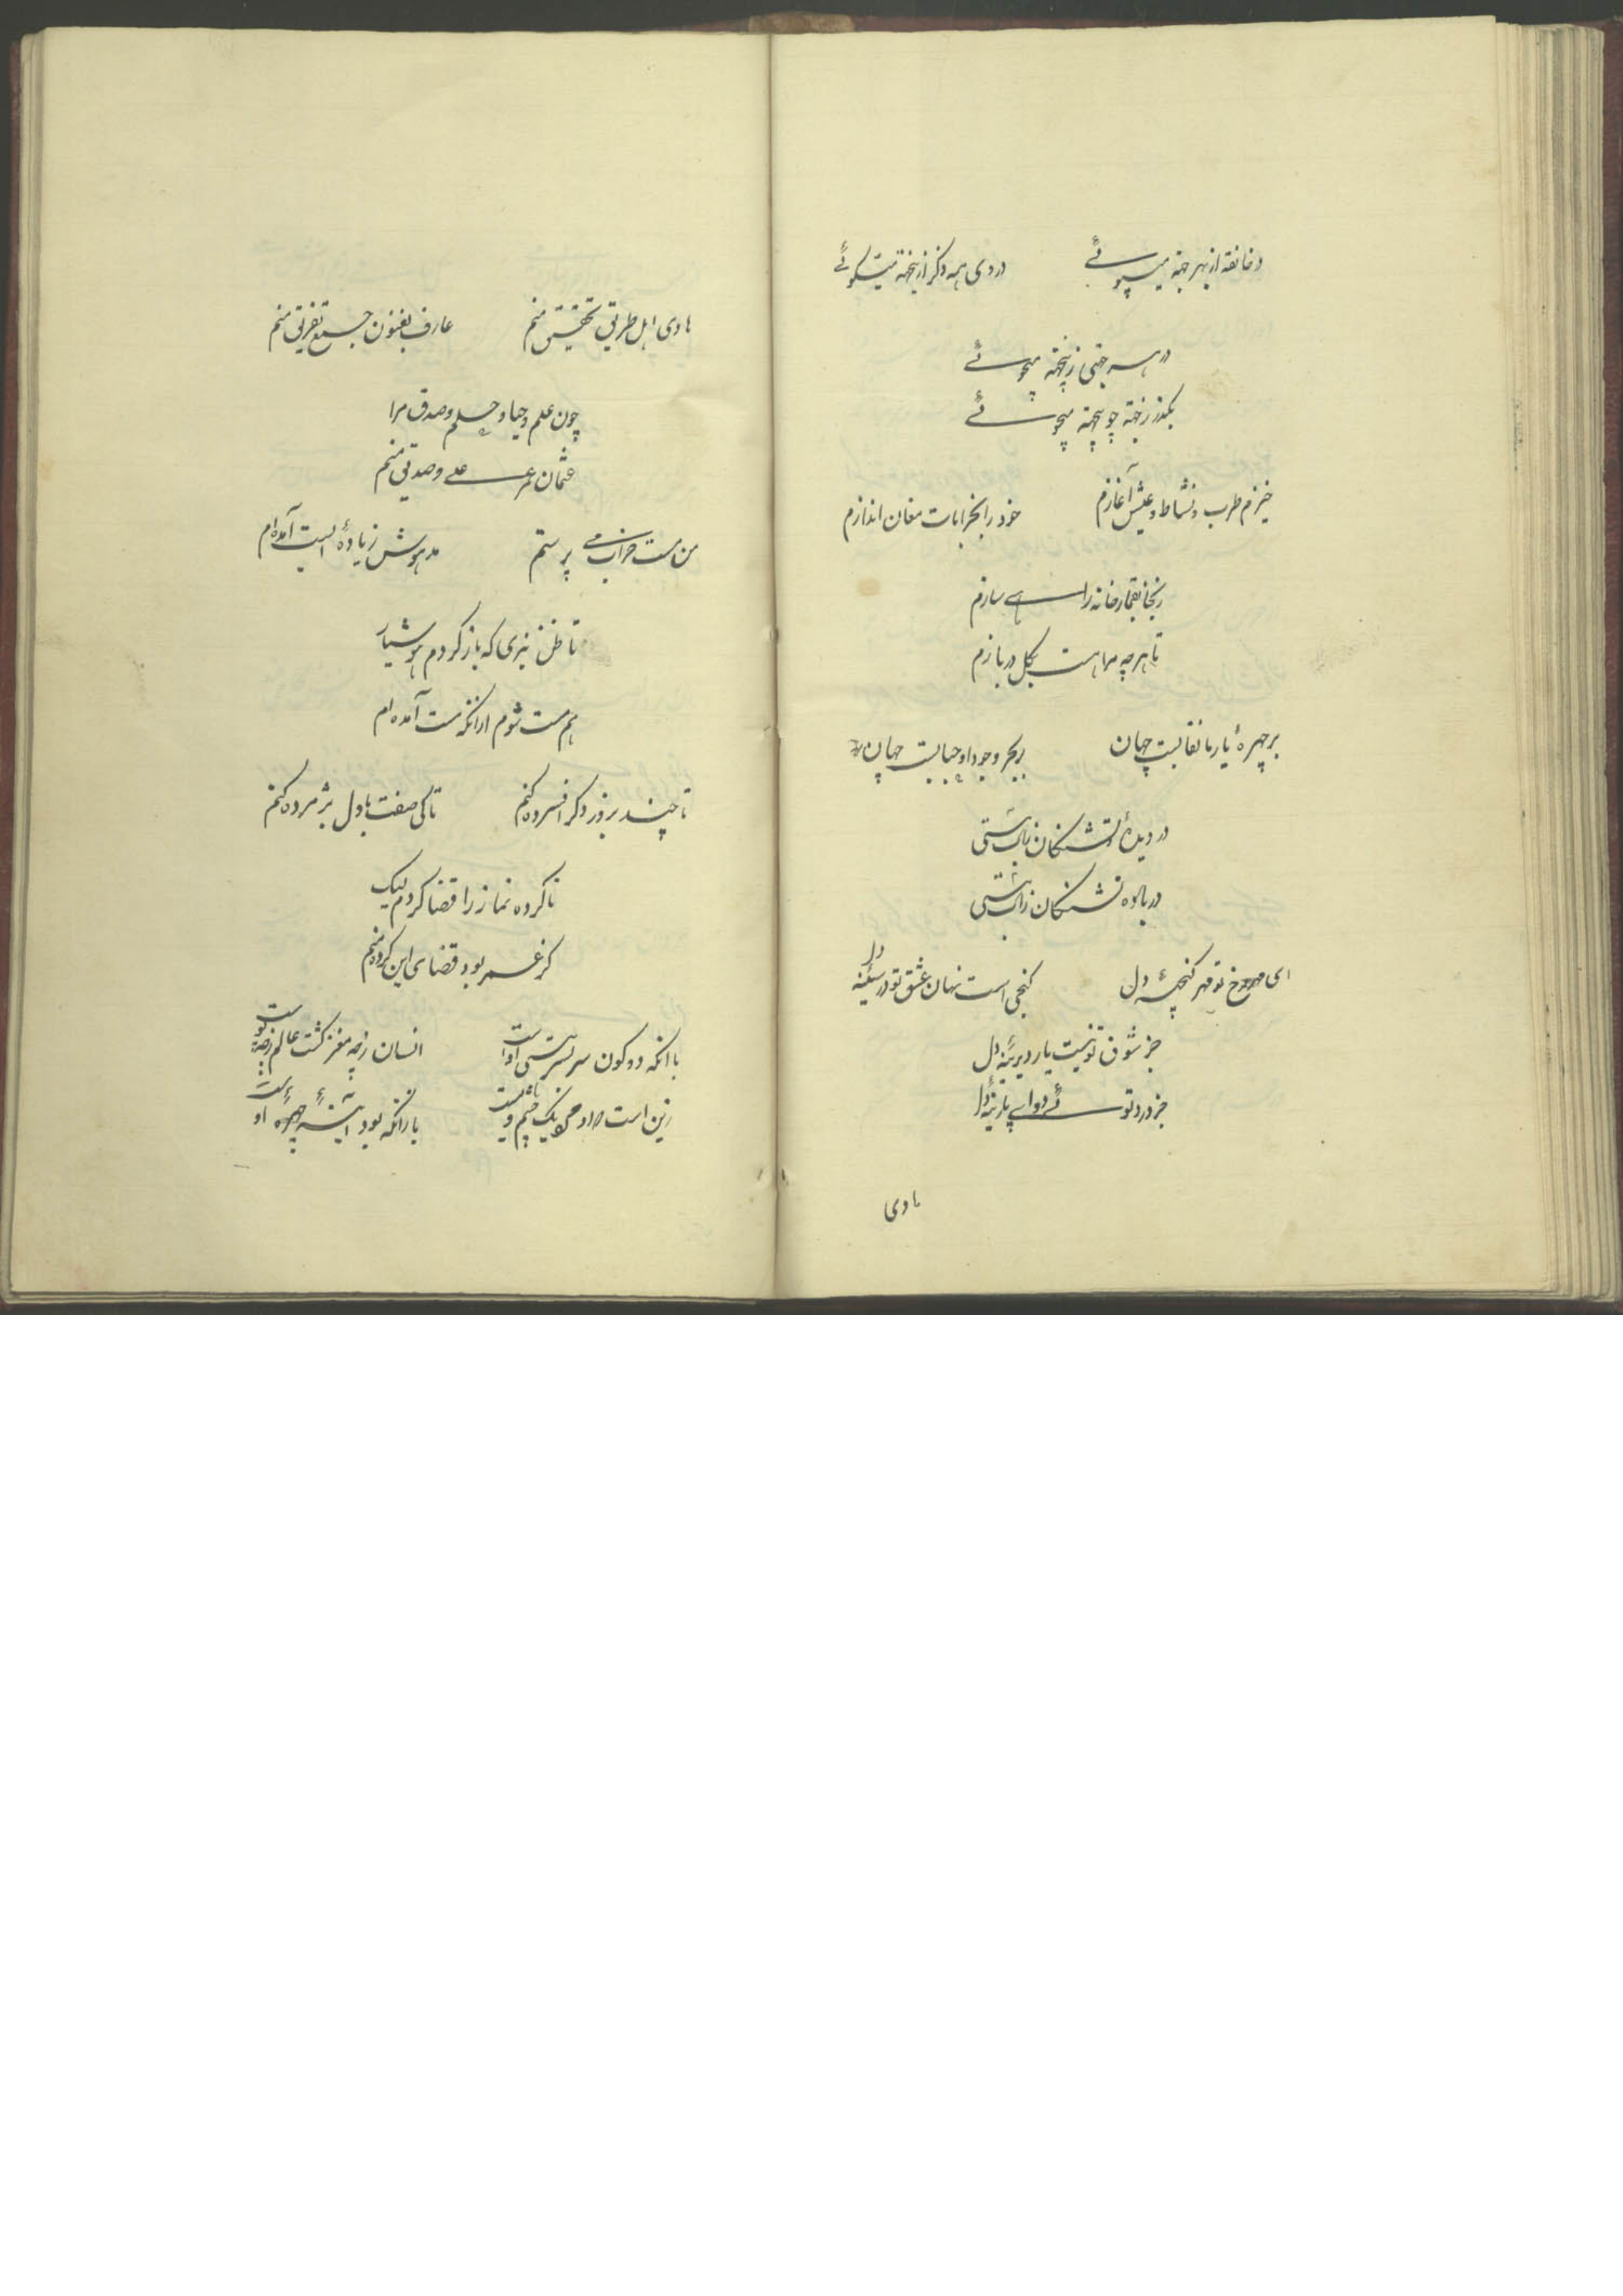 در وی همه ذکر از نجته میگوئے
در هر جهتی ز پنجته میجوئے
بگذر ز جهته چو بیجهته میجوئے
خیزم طرب و نشاط و عیش آغازم
خود را بخرابات مغان اندازم
زینجا بقمارخانه راهے سازم
تا هر چه مرا هست بکل دربازم
بر چهرهٔ یار ما نقابیست جهان
بر بحر وجود او حبابیست جهان
در دیدهٔ تشنگان ز آب هستی
در بادیه تشنگان ز آب هستی
ای مهر رخ تو مهر گنجینهٔ دل
گنجی است نهان عشق تو در سینهٔ دل
جز شوق تو نیست یار دیرینهٔ دل
جز درد تو نے دواے پارینهٔ دل
هادی
هادی اهل طریق تحقیق منم
عارف بفنون جمع تفریق منم
چون علم و حیا و حلم و صدق مرا
عثمان عمر علے و صدیق منم
من مست خراب مے پرستم
مدهوش ز بادهٔ الست آمده ام
تا ظن نبری که باز گردم هوشیار
هم مست شوم ازانکه مست آمده ام
تا چند بروز دگر افسرده کنم
تا کی صفت با دل پژمرده کنم
ناکرده نماز را قضا کردم لیک
گر عمر بود قضای این کرده منم
با انکه دو کون سر بسر هستی اوست
انسان ز چه مغز گشت عالم ز چه پوست
زین است
یا زانکه بود آئینهٔ چهرهٔ او